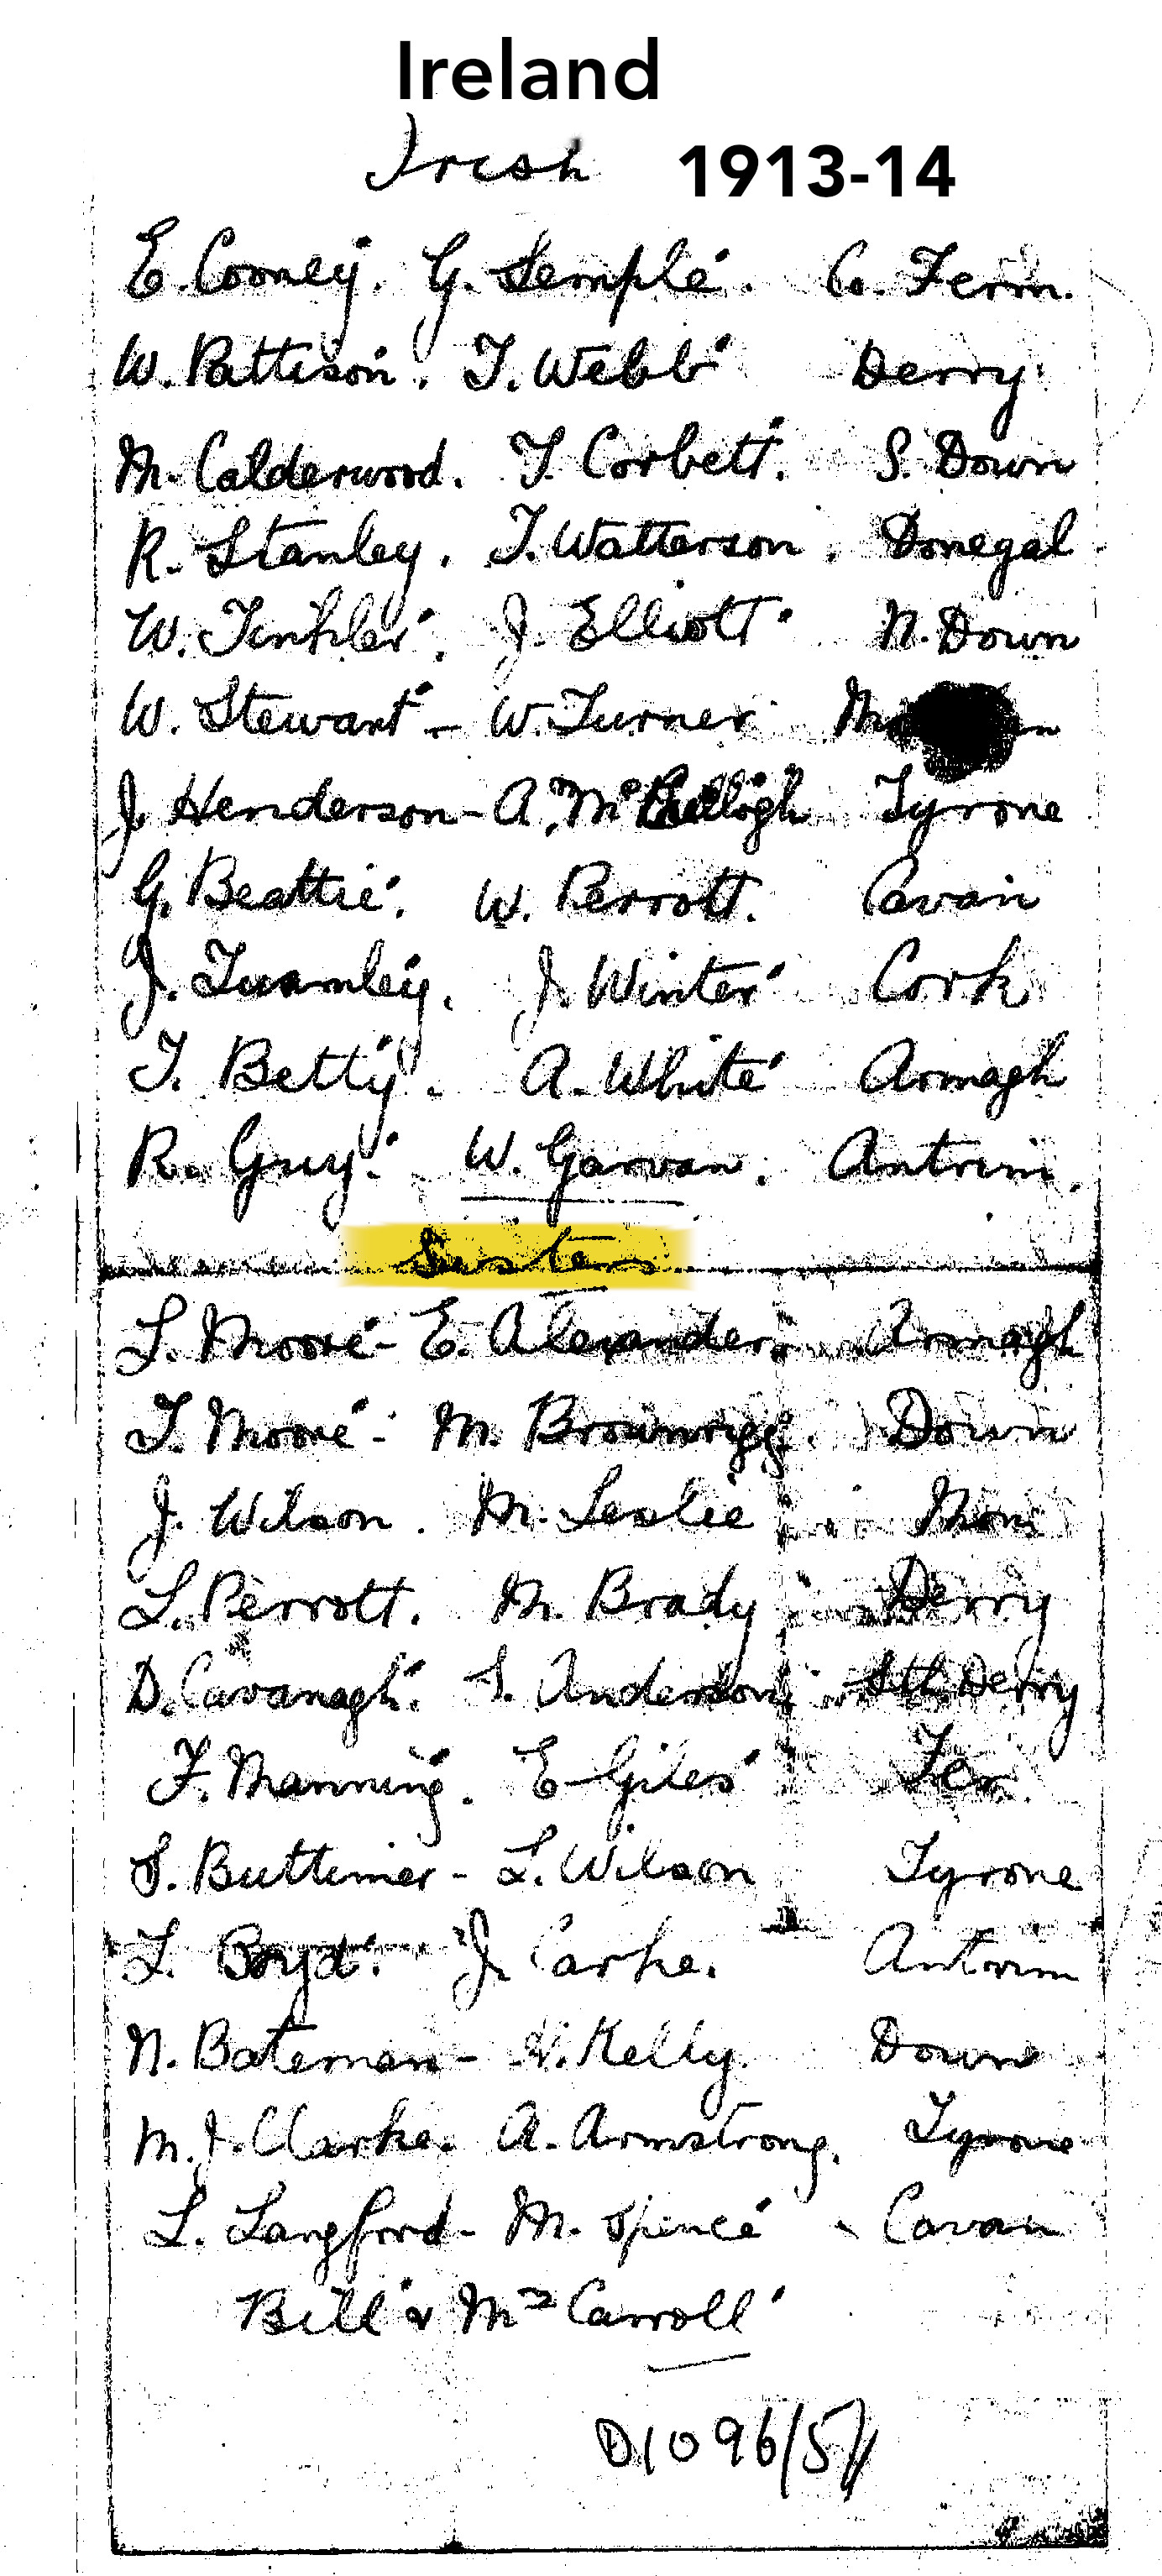 Ireland
Irish 1913-14
E. Cooney. G. Semple. Co. Ferm.
W. Pattison. T. Webb Derry
M. Calderwood. T. Corbett. S. Down
R. Stanley. T. Watterson. Donegal
W. Tinkler. J. Elliott N. Down
W. Stewart - W. Turner
J. Henderson - A. Tyrone
G. Beattie. W. Perrott. Cavan
J. Twamley. J. Winter Cork
T. Betty. A. White Armagh
R. Guy. W. Garvan. Antrim.
Sisters
L. Moore - E. Alexander. Armagh
T. Moore - M. Brownrigg. Down
J. Wilson. M. Leslie Mon
L. Perrott. M. Brady Derry
D. Cavanagh. S. Anderson Sth. Derry
F. Manning. E Giles Fer
S. Buttimer - L. Wilson Tyrone
L. Boyd. J. Carke. Antrim
N. Bateman - Kelly Down
M. J. Clarke. A. Armstrong. Tyrone
L. Langford - M. Spence Cavan
Bill & Carroll
D1096/5/